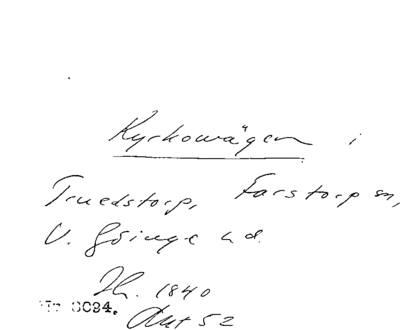 Kyrkowägen i
Truedstorp, Farstorp sn,
V. Göinge hd.
1840
Akt 52